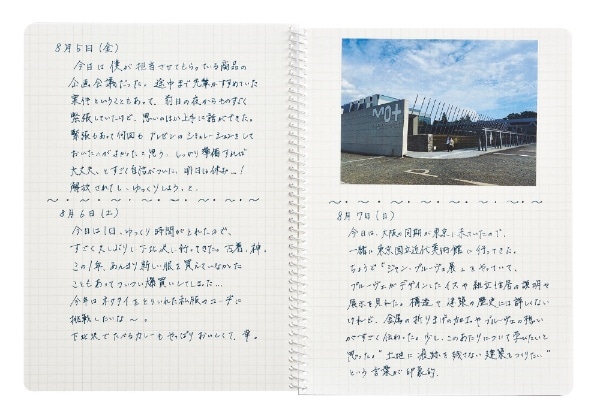 8月5日(金)
今日は僕が担当させてもらっている商品の
企画会議だった。途中まで先輩がすすめていた
案件ということもあって、前日の夜からものすごく
緊張していたけど、思いのほか上手に話ができた。
緊張もあって何回もプレゼンのシミュレーションをして
おいたのがよかったと思う。しっかり準備すれば
大丈夫、とすごく自信がついた。明日は休み…!
解放されたし、ゆっくりしよっと。
8月6日(土)
今日は1日、ゆっくり時間がとれたので、
すごく久しぶりに下北沢に行ってきた。古着、神。
この1年、あんまり新しい服を買えていなかった
こともあってついつい爆買いしてしまった…
今年はネクタイをとりいれた私服のコーデに
挑戦したいな〜。
下北沢でたべるカレーもやっぱりおいしくて、幸。
MOT
8月7日(日)
今日は、大阪の同期が東京に来ていたので、
一緒に東京国立近代美術館に行ってきた。
ちょうど「ジャン・プルーヴェ展」をやっていて、
プルーヴェがデザインしたイスや組立住居の説明や
展示を見れた。構造や建築の歴史には詳しくない
けれど、金属の折りまげの加工やプルーヴェの想い
がすごく伝わった。少し、このあたりについて学びたいと
思った。"土地に痕跡を残さない建築をつくりたい"
という言葉が印象的。